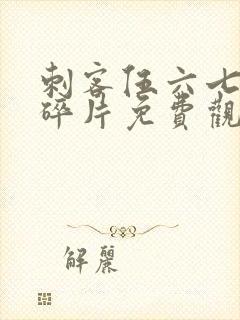 刺客伍六七
碎片免費觀
解麗